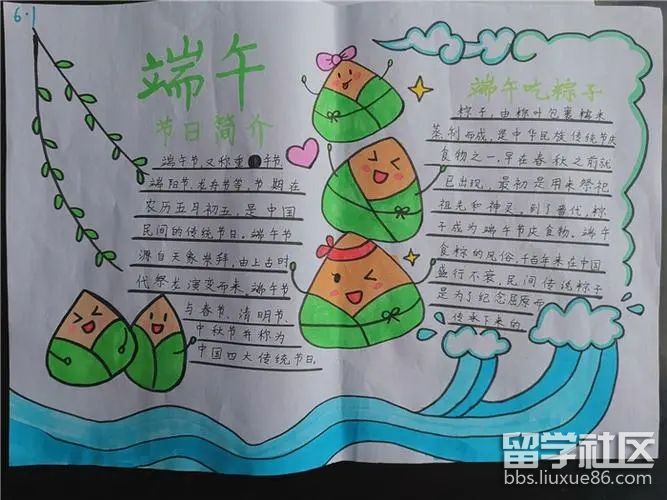 6.1
端午
节日简介
端午节,又称重午节
端阳节、龙舟节等,节期在
农历五月初五,是中国
民间的传统节日。端午节
源自天象崇拜,由上古时
代祭龙演变而来,端午节
与春节、清明节、
中秋节并称为
中国四大传统节日
端午吃粽子
粽子,由粽叶包裹糯米
蒸制而成,是中华民族传统节庆
食物之一,早在春秋之前就
已出现,最初是用来祭祀
祖先和神灵,到了晋代,粽
子成为端午节庆食物。端午
食粽的风俗,千百年来在中国
盛行不衰,民间传说粽子
是为了纪念屈原而
传承下来的
留学社区
bbs.liuxue86.com